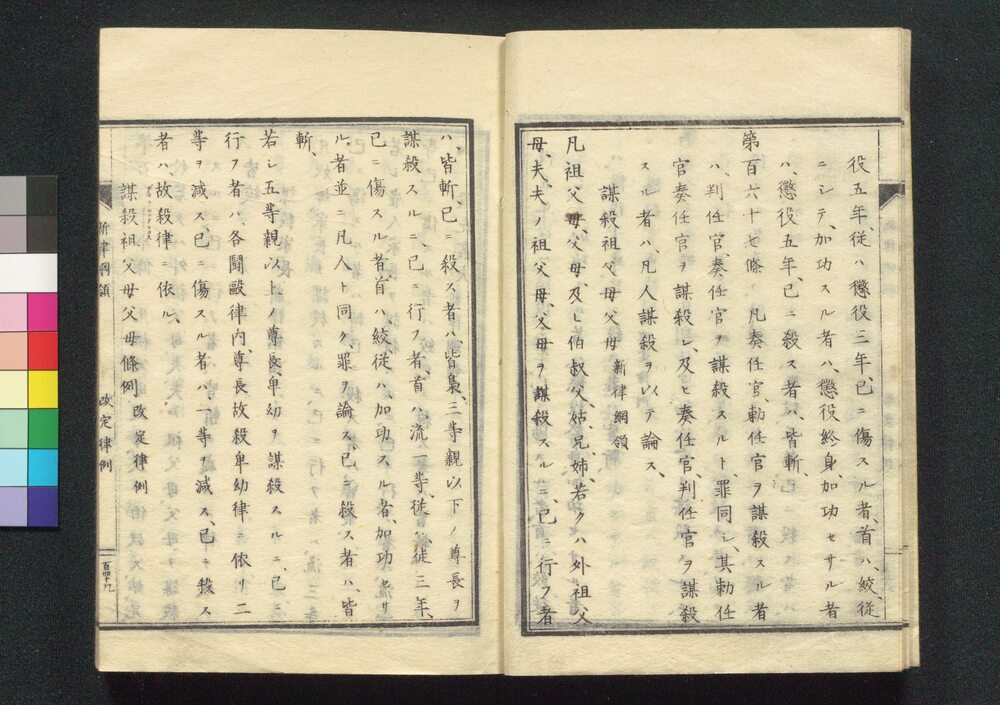 役五年、従ハ懲役三年、已ニ傷スル者、首ハ絞、従
ニシテ、加功スル者ハ、懲役終身加功セサル者
ハ、懲役五年、已ニ殺ス者ハ、皆斬、
第百六十七條 凡奏任官、勅任官ヲ謀殺スル者
ハ、判任官、奏任官ヲ謀殺スルト、罪同シ、其勅任
官奏任官ヲ謀殺シ、及ヒ奏任官判任官ヲ謀殺
スル者ハ凡人謀殺ヲ以テ論ス、
謀殺祖父母父母 新律綱領
凡祖父母、父母、及ヒ伯叔父、姑、兄、姉、若クハ外祖父
母、夫、夫ノ祖父母、父母ヲ謀殺スルニ、已ニ行フ者
ハ、皆斬、已ニ殺ス者ハ、皆梟、三等親以下ノ尊長ヲ
謀殺スルニ、已ニ行フ者、首ハ、流一等、従ハ、徒三年、
已ニ傷スル者、首ハ絞従ハ加功スル者、加功セサ
ル者並ニ凡人ト同ク罪ヲ論ス、已ニ殺ス者ハ、皆
斬、
若シ五等親以上ノ尊長、卑幼ヲ謀殺スルニ、已ニ
行フ者ハ、各闘毆律内、尊長故殺卑幼律ニ依リ二
等ヲ減ス、已ニ傷スル者ハ、一等ヲ減ス、已ニ殺ス
者ハ、故殺律ニ依ル、
謀殺祖父母父母條例 改定律例
新律綱領 改定律例 百四十九